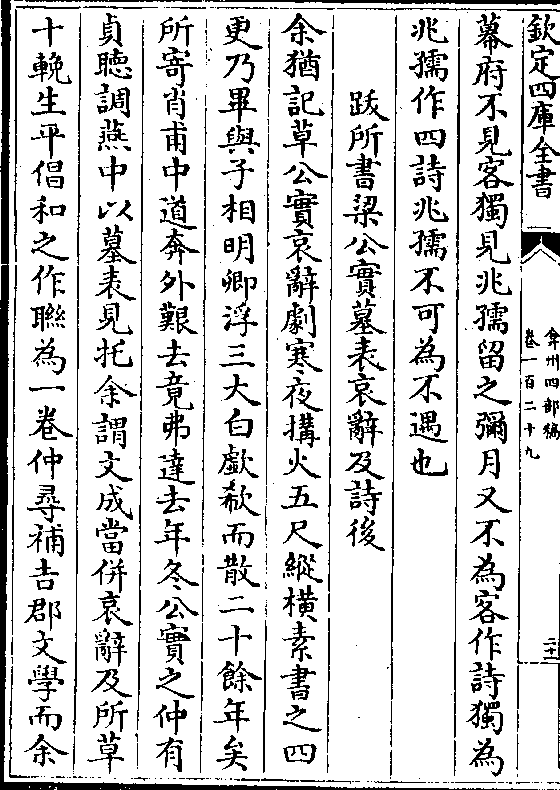 欽定四庫全書
弇州四部稿
卷一百二十九
幕府不見客獨見兆孺留之彌月又不為客作詩獨為
兆孺作四詩兆孺不可為不遇也
跋所書梁公實墓表哀辭及詩後
余猶記草公實哀辭劇寒夜搆火五尺縱橫素書之四
更乃畢與子相明卿浮三大白歔欷而散二十餘年矣
所寄肖甫中道奔外艱去竟弗達去年冬公實之仲有
貞聽調燕中以墓表見托余謂文成當併哀辭及所草
十輓生平倡和之作聯為一卷仲尋補吉郡文學而余